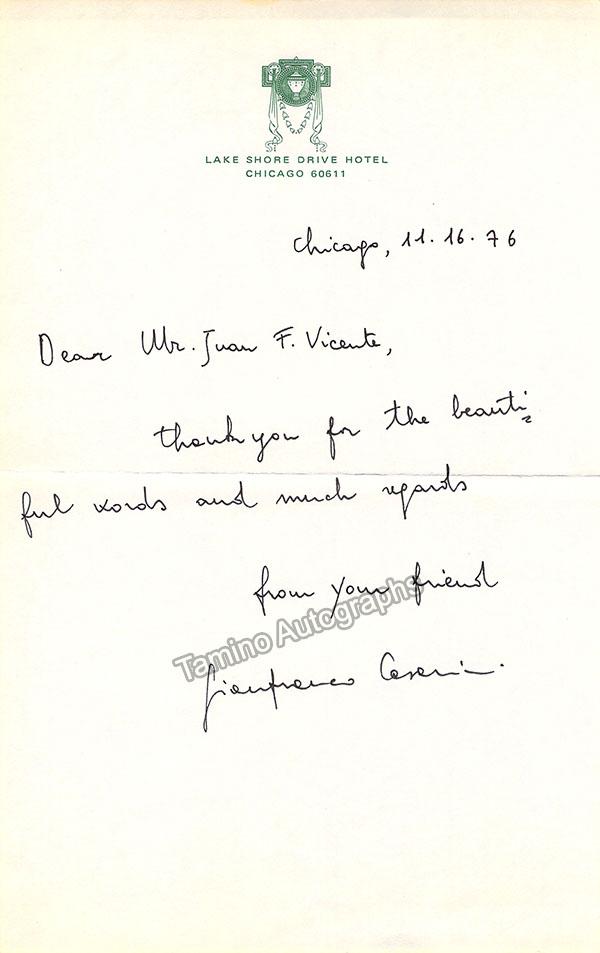 LAKE SHORE DRIVE HOTEL
CHICAGO 60611
Chicago, 11.16.76
Dear Mr. Juan F. Vicente,
thank you for the beauti=
ful words and much regards
from your friend
Tamino Autographs
Gianfranco Cesarini.